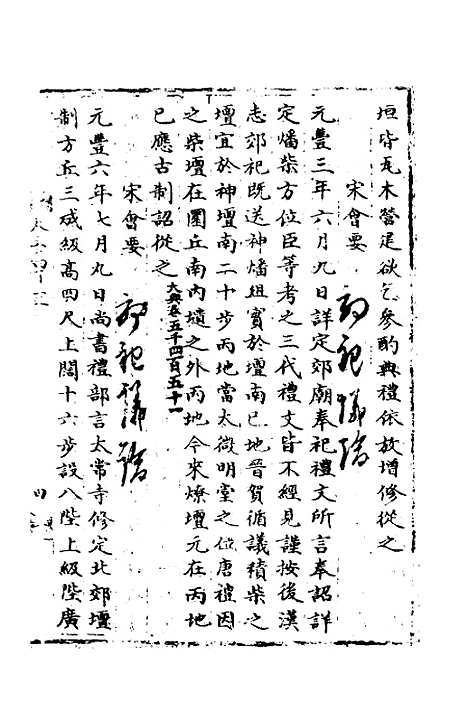 垣皆瓦木營足欲乞參酌典禮依放增修從之
宋會要
郊祀儀論
元豐三年六月九日詳定郊廟奉祀禮文所言奉詔詳
定燔柴方位臣等考之三代禮文皆不經見謹按後漢
志郊祀既送神燔俎實於壇南巳地晉賀循議積柴之
壇宜於神壇南二十步丙地當太微明堂之位唐禮因
之柴壇在圜丘南內壝之外丙地今來燎壇元在丙地
已應古制詔從之
大典卷五千四百五十一
宋會要
郊祀議論
元豐六年七月九日尚書禮部言太常寺修定北郊壇
制方丘三成級高四尺上闊十六步設八陛上級陛廣